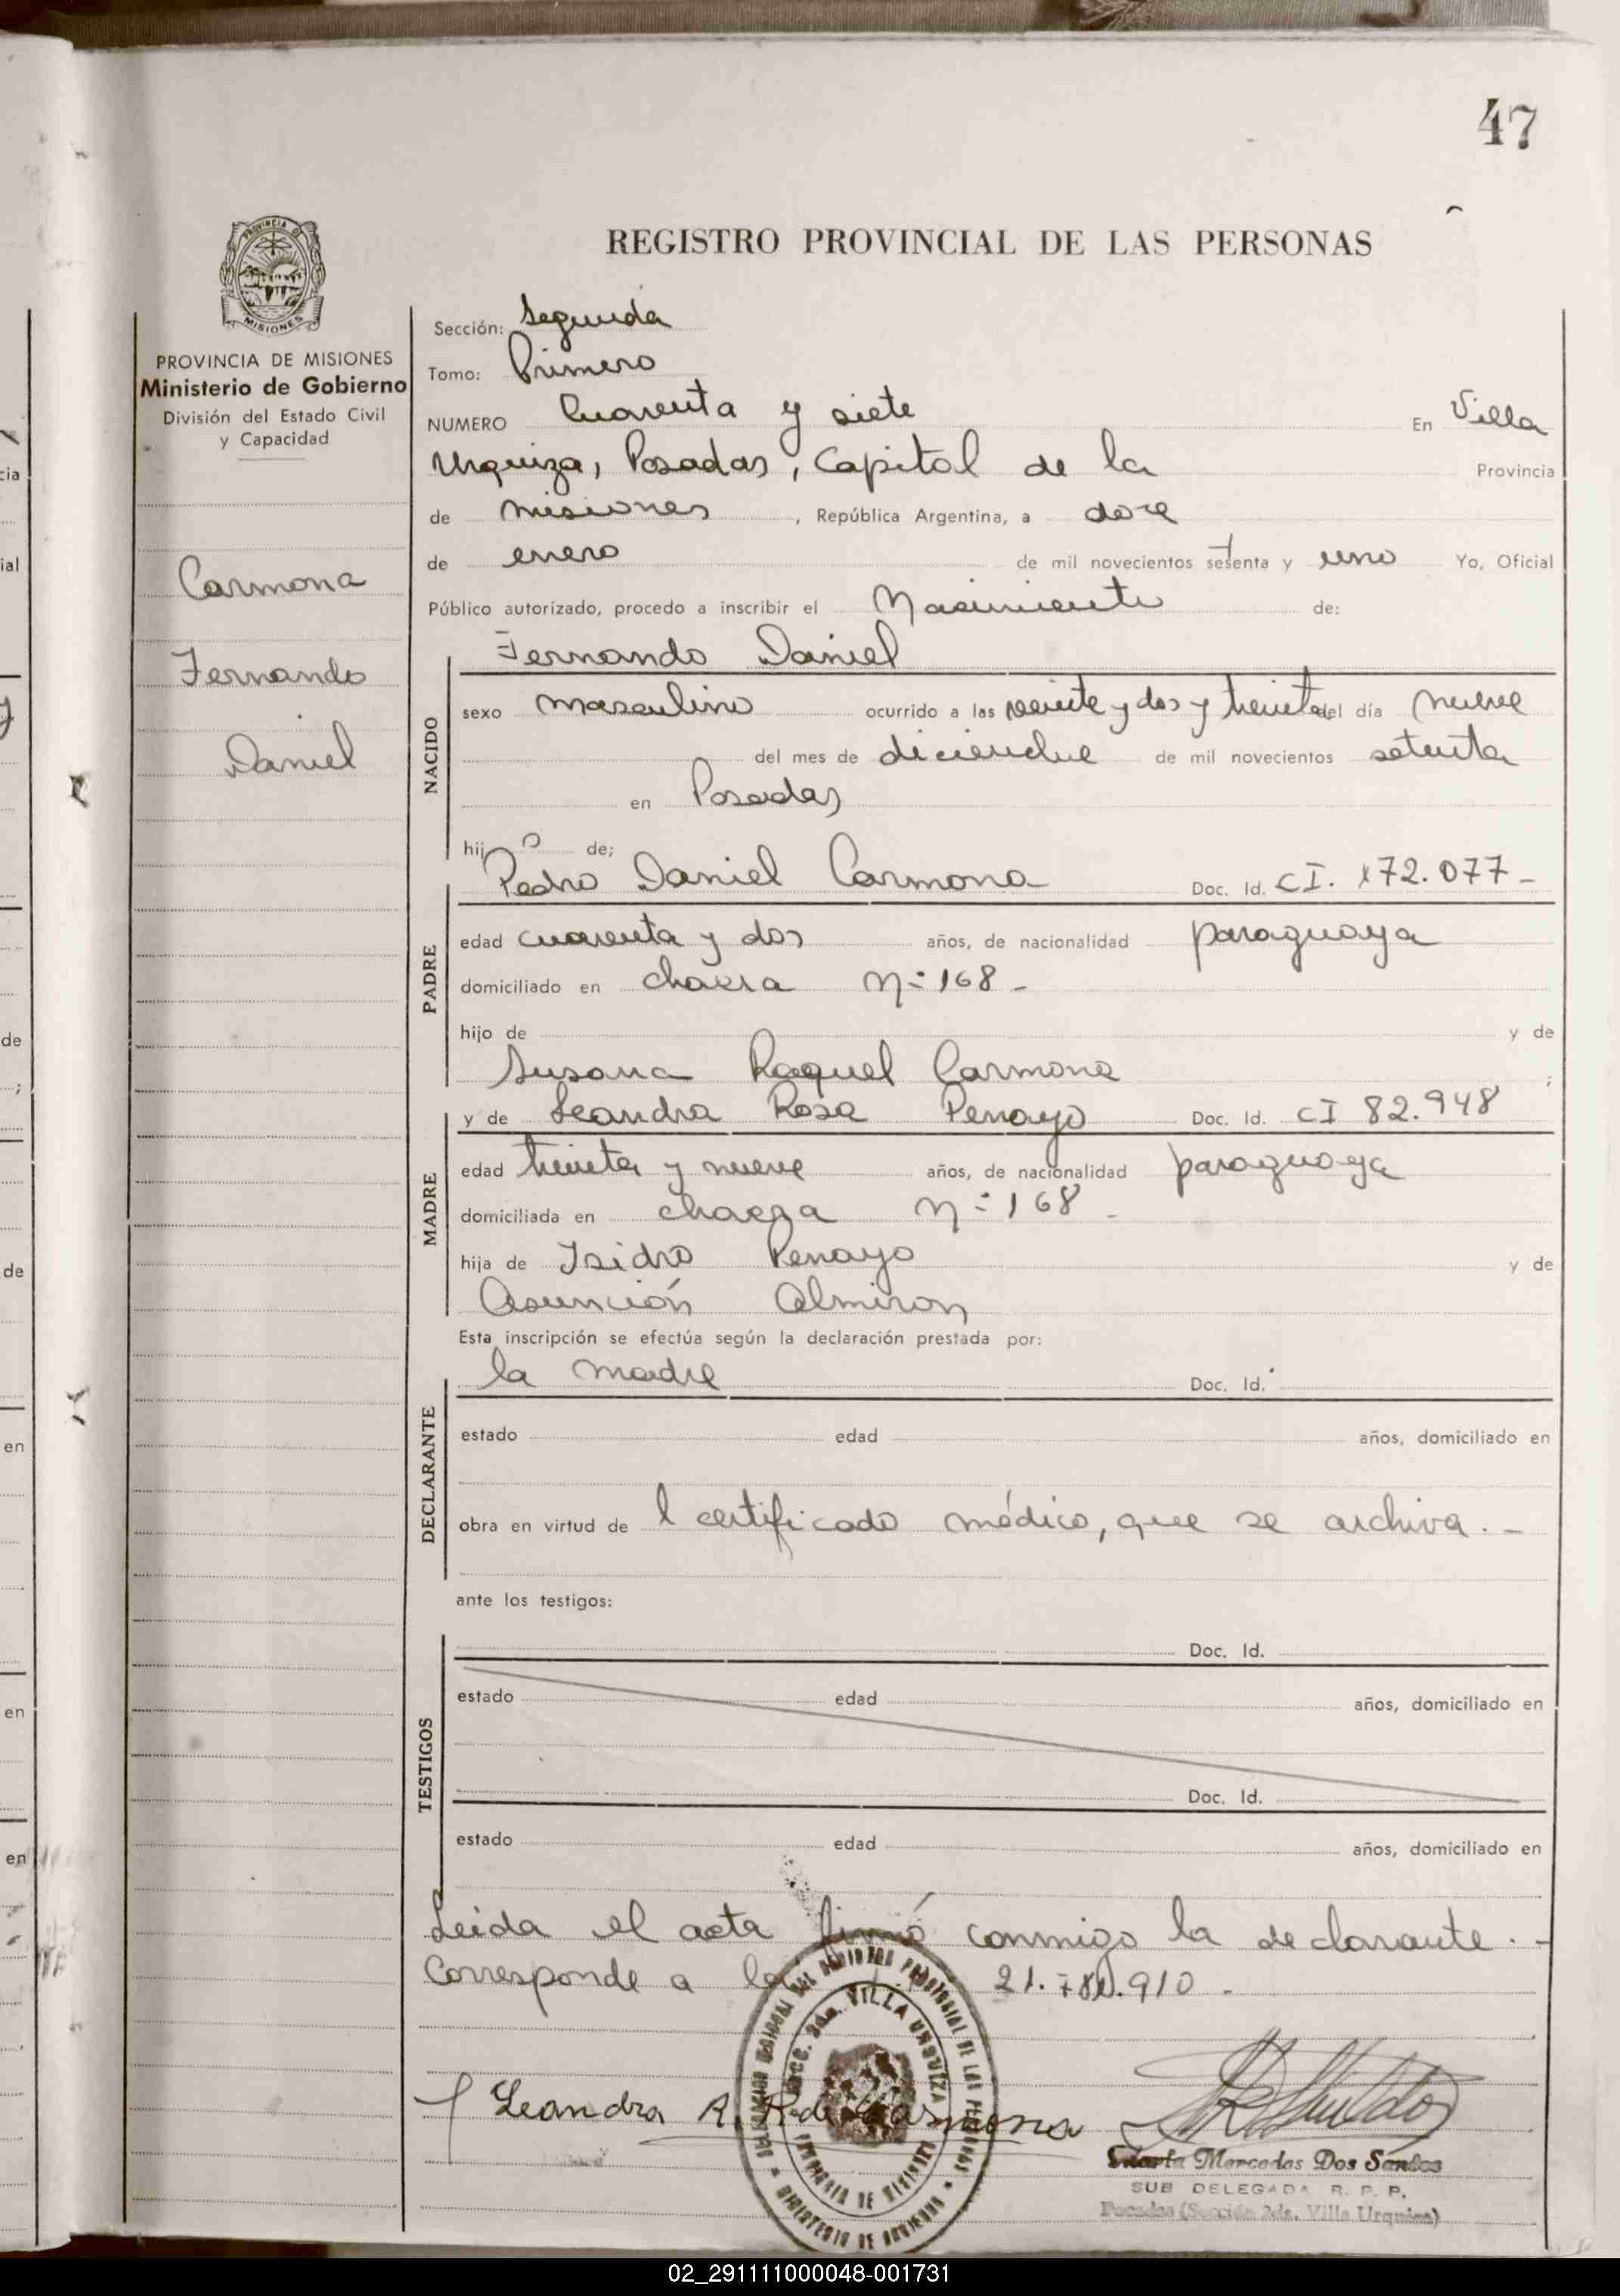 47
REGISTRO PROVINCIAL DE LAS PERSONAS
PROVINCIA DE MISIONES
Ministerio de Gobierno
División del Estado Civil
y Capacidad
Carmona
Fernando
Daniel
Sección: Segunda
Tomo: Primero
NUMERO Cuarenta y siete En Villa
Urquiza, Posadas, Capital de la Provincia
de misiones, República Argentina, a doce
de enero de mil novecientos setenta y uno Yo, Oficial
Público autorizado, procedo a inscribir el Nacimiento de:
Fernando Daniel
NACIDO
sexo masculino ocurrido a las veinte y dos y treinta del día nueve
del mes de diciembre de mil novecientos setenta
en Posadas
hijo de;
Pedro Daniel Carmona Doc. Id. CI. 172.077-
PADRE
edad cuarenta y dos años, de nacionalidad paraguaya
domiciliado en chacra N= 168-
hijo de y de
Susana Raquel Carmona ;
y de Leandra Rosa Penayo Doc. Id. CI 82.948
MADRE
edad treinta y nueve años, de nacionalidad paraguaya
domiciliada en chacra N= 168-
hija de Isidro Penayo y de
Asunción Almiron
Esta inscripción se efectúa según la declaración prestada por:
la madre Doc. Id.
DECLARANTE
estado edad años, domiciliado en
obra en virtud de l certificado médico, que se archiva.-
ante los testigos:
Doc. Id.
TESTIGOS
estado edad años, domiciliado en
Doc. Id.
estado edad años, domiciliado en
Leida el acta firmó conmigo la declarante.-
Corresponde a 21.910-
Leandra R. P. de Carmona
Marta Mercedes Dos Santos
SUB DELEGADA R. P. P.
Posadas (Sección 2da. Villa Urquiza)
02_291111000048-001731